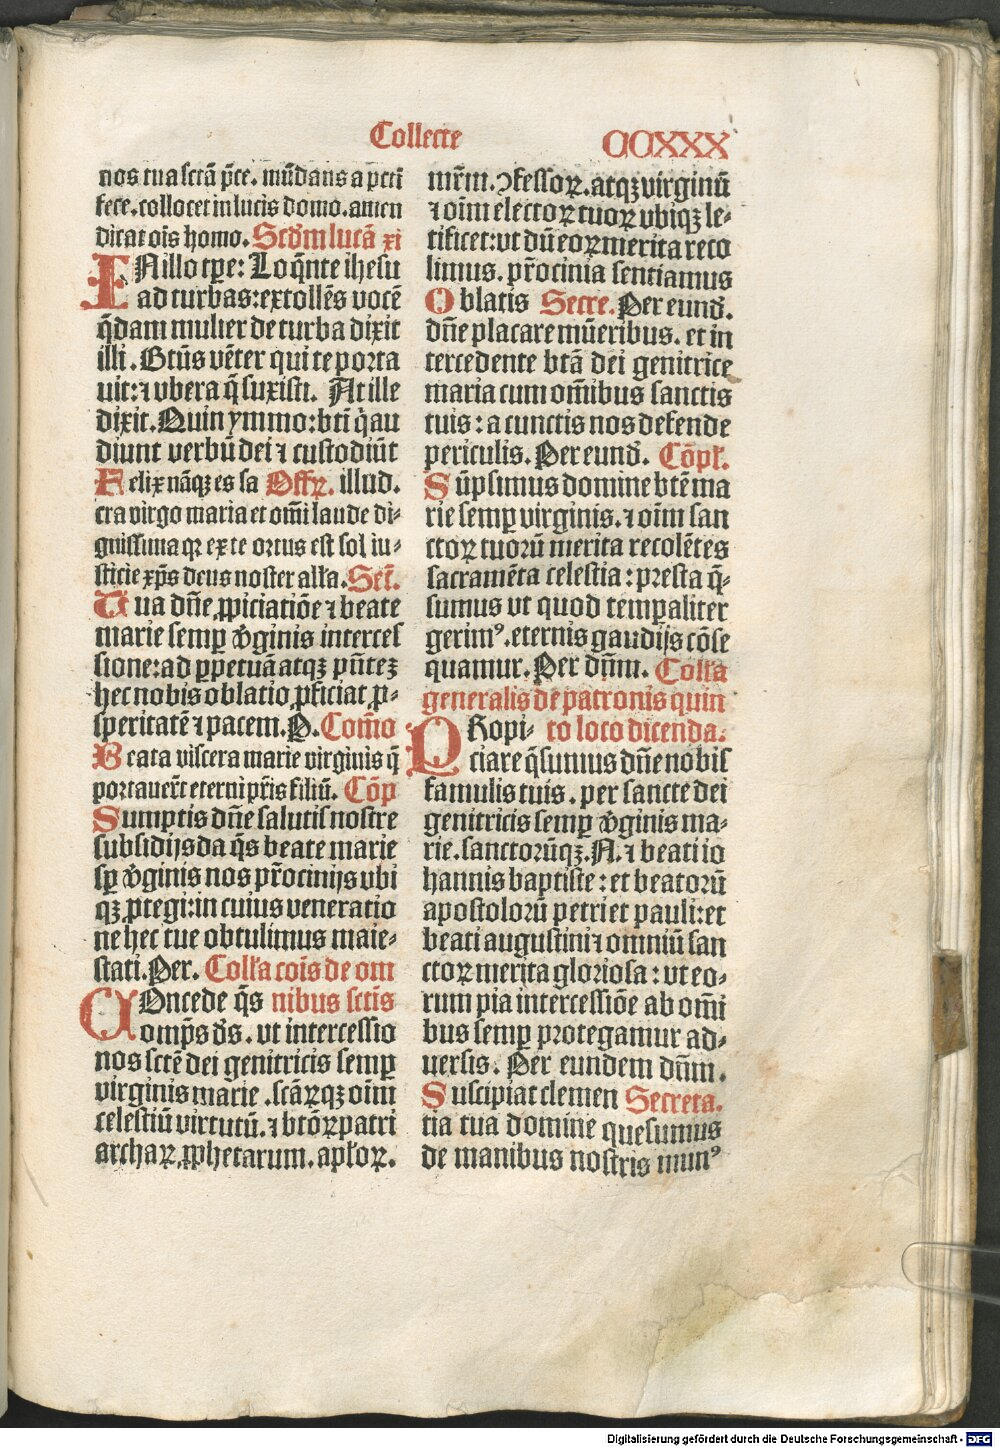 Collecte CCXXX
nos tua sctā p̄ce. mūdans a pcti
fece. collocet in lucis domo. amen
dicat ois homo. Scd̄m lucā xi
IN illo tpe: Loq̄nte ihesu
ad turbas: extollēs vocē
q̄dam mulier de turba dixit
illi. Btūs vēter qui te porta
uit: ⁊ vbera q̄ suxisti. At ille
dixit. Quin ymmo: bti q̄ au
diunt verbū dei ⁊ custodiūt
Felix nāqꝫ es sa Offꝝ. illud.
cra virgo maria et om̄i laude di⸗
gnissima qꝛ ex te ortus est sol iu⸗
sticie xp̄s deus noster alla. Sec̄.
Tua dn̄e ꝓpiciatiōe ⁊ beate
marie semꝑ v̄ginis interces
sione: ad ꝑpetuā atqꝫ pn̄teꝫ
hec nobis oblatio ꝓficiat ꝓ⸗
speritatē ⁊ pacem. P. Com̄o
Beata viscera marie virginis q̄
portauer̄t eterni pr̄is filiū. Cōp
Sumptis dn̄e salutis nostre
subsidijs da q̄s beate marie
sꝑ v̄ginis nos pr̄ocinijs vbi
qꝫ ꝓtegi: in cuius veneratio
ne hec tue obtulimus maie⸗
stati. Per. Coll̄a cōis de om
COncede q̄s nibus sctis
omp̄s ds. vt intercessio
nos sctē dei genitricis semꝑ
virginis marie. scāꝝqꝫ oim̄
celestiū virtutū. ⁊ btōꝝ patri
archaꝝ, ꝓphetarum. apl̄oꝝ.
mr̄m. ꝯfessoꝝ. atqꝫ virginū
⁊ oim̄ electoꝝ tuoꝝ vbiqꝫ le⸗
tificet: vt dū eoꝝ merita reco
limus. pr̄ocinia sentiamus
Oblatis Secre. Per eund̄.
dn̄e placare mūeribus. et in
tercedente btā dei genitrice
maria cum om̄ibus sanctis
tuis: a cunctis nos defende
periculis. Per eund̄. Cōpl̄.
Sūpsimus domine btē ma
rie semꝑ virginis. ⁊ oim̄ san
ctoꝝ tuorū merita recolētes
sacramēta celestia: presta q̄⸗
sumus vt quod tempaliter
gerimꝰ. eternis gaudijs cōse
quamur. Per dn̄m. Coll̄a
generalis de patronis quin
PRopi⸗ to loco dicenda.
ciare q̄sumus dn̄e nobis
famulis tuis. per sancte dei
genitricis semꝑ v̄ginis ma⸗
rie. sanctorūqꝫ. N. ⁊ beati io
hannis baptiste: et beatorū
apostolorū petri et pauli: et
beati augustini ⁊ omniū san
ctoꝝ merita gloriosa: vt eo⸗
rum pia intercessiōe ab om̄i
bus semꝑ protegamur ad⸗
uersis. Per eundem dn̄m.
Suscipiat clemen Secreta.
tia tua domine quesumus
de manibus nostris munꝰ
Digitalisierung gefördert durch die Deutsche Forschungsgemeinschaft - DFG